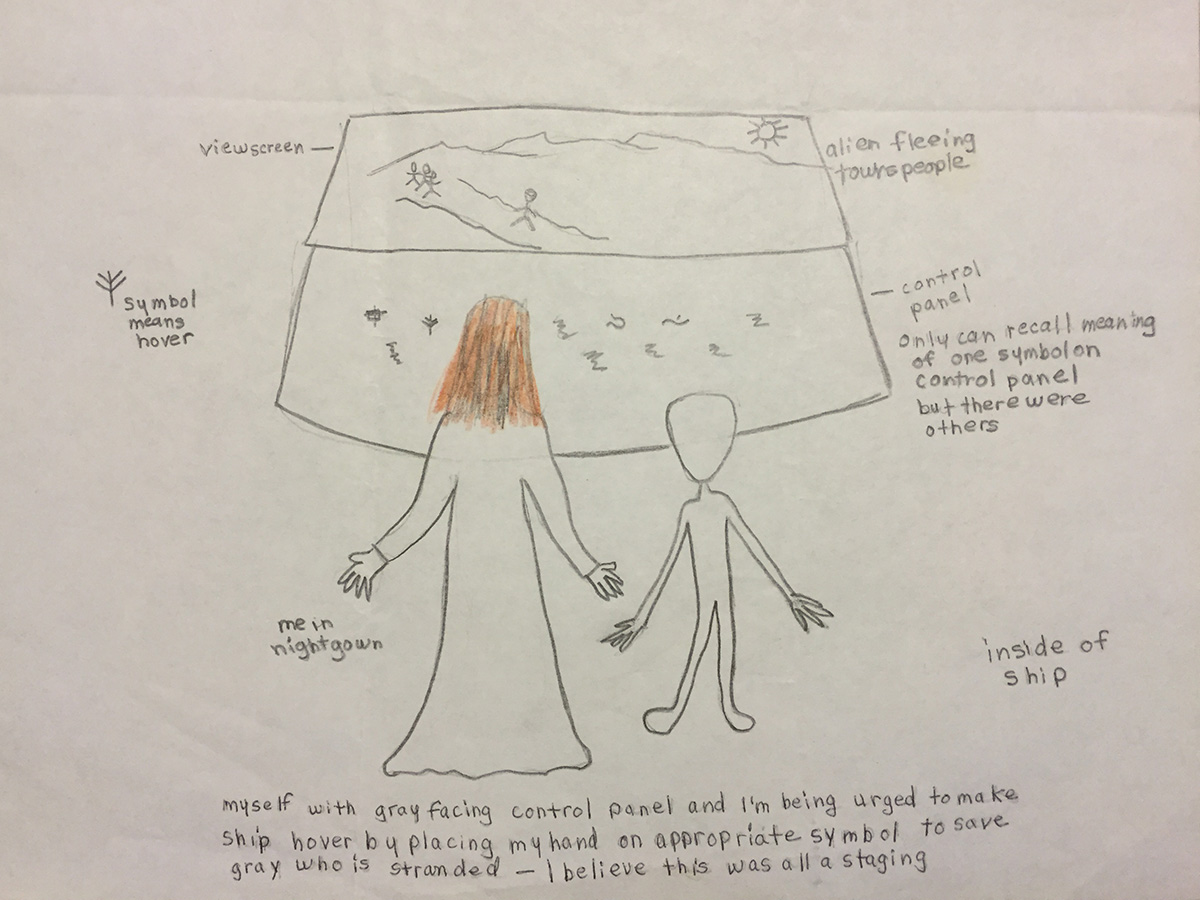 viewscreen
alien fleeing
townspeople
symbol
means
hover
control
panel
only can recall meaning
of one symbol on
control panel
but there were
others
me in
nightgown
inside of
ship
myself with gray facing control panel and I'm being urged to make
ship hover by placing my hand on appropriate symbol to save
gray who is stranded — I believe this was all a staging